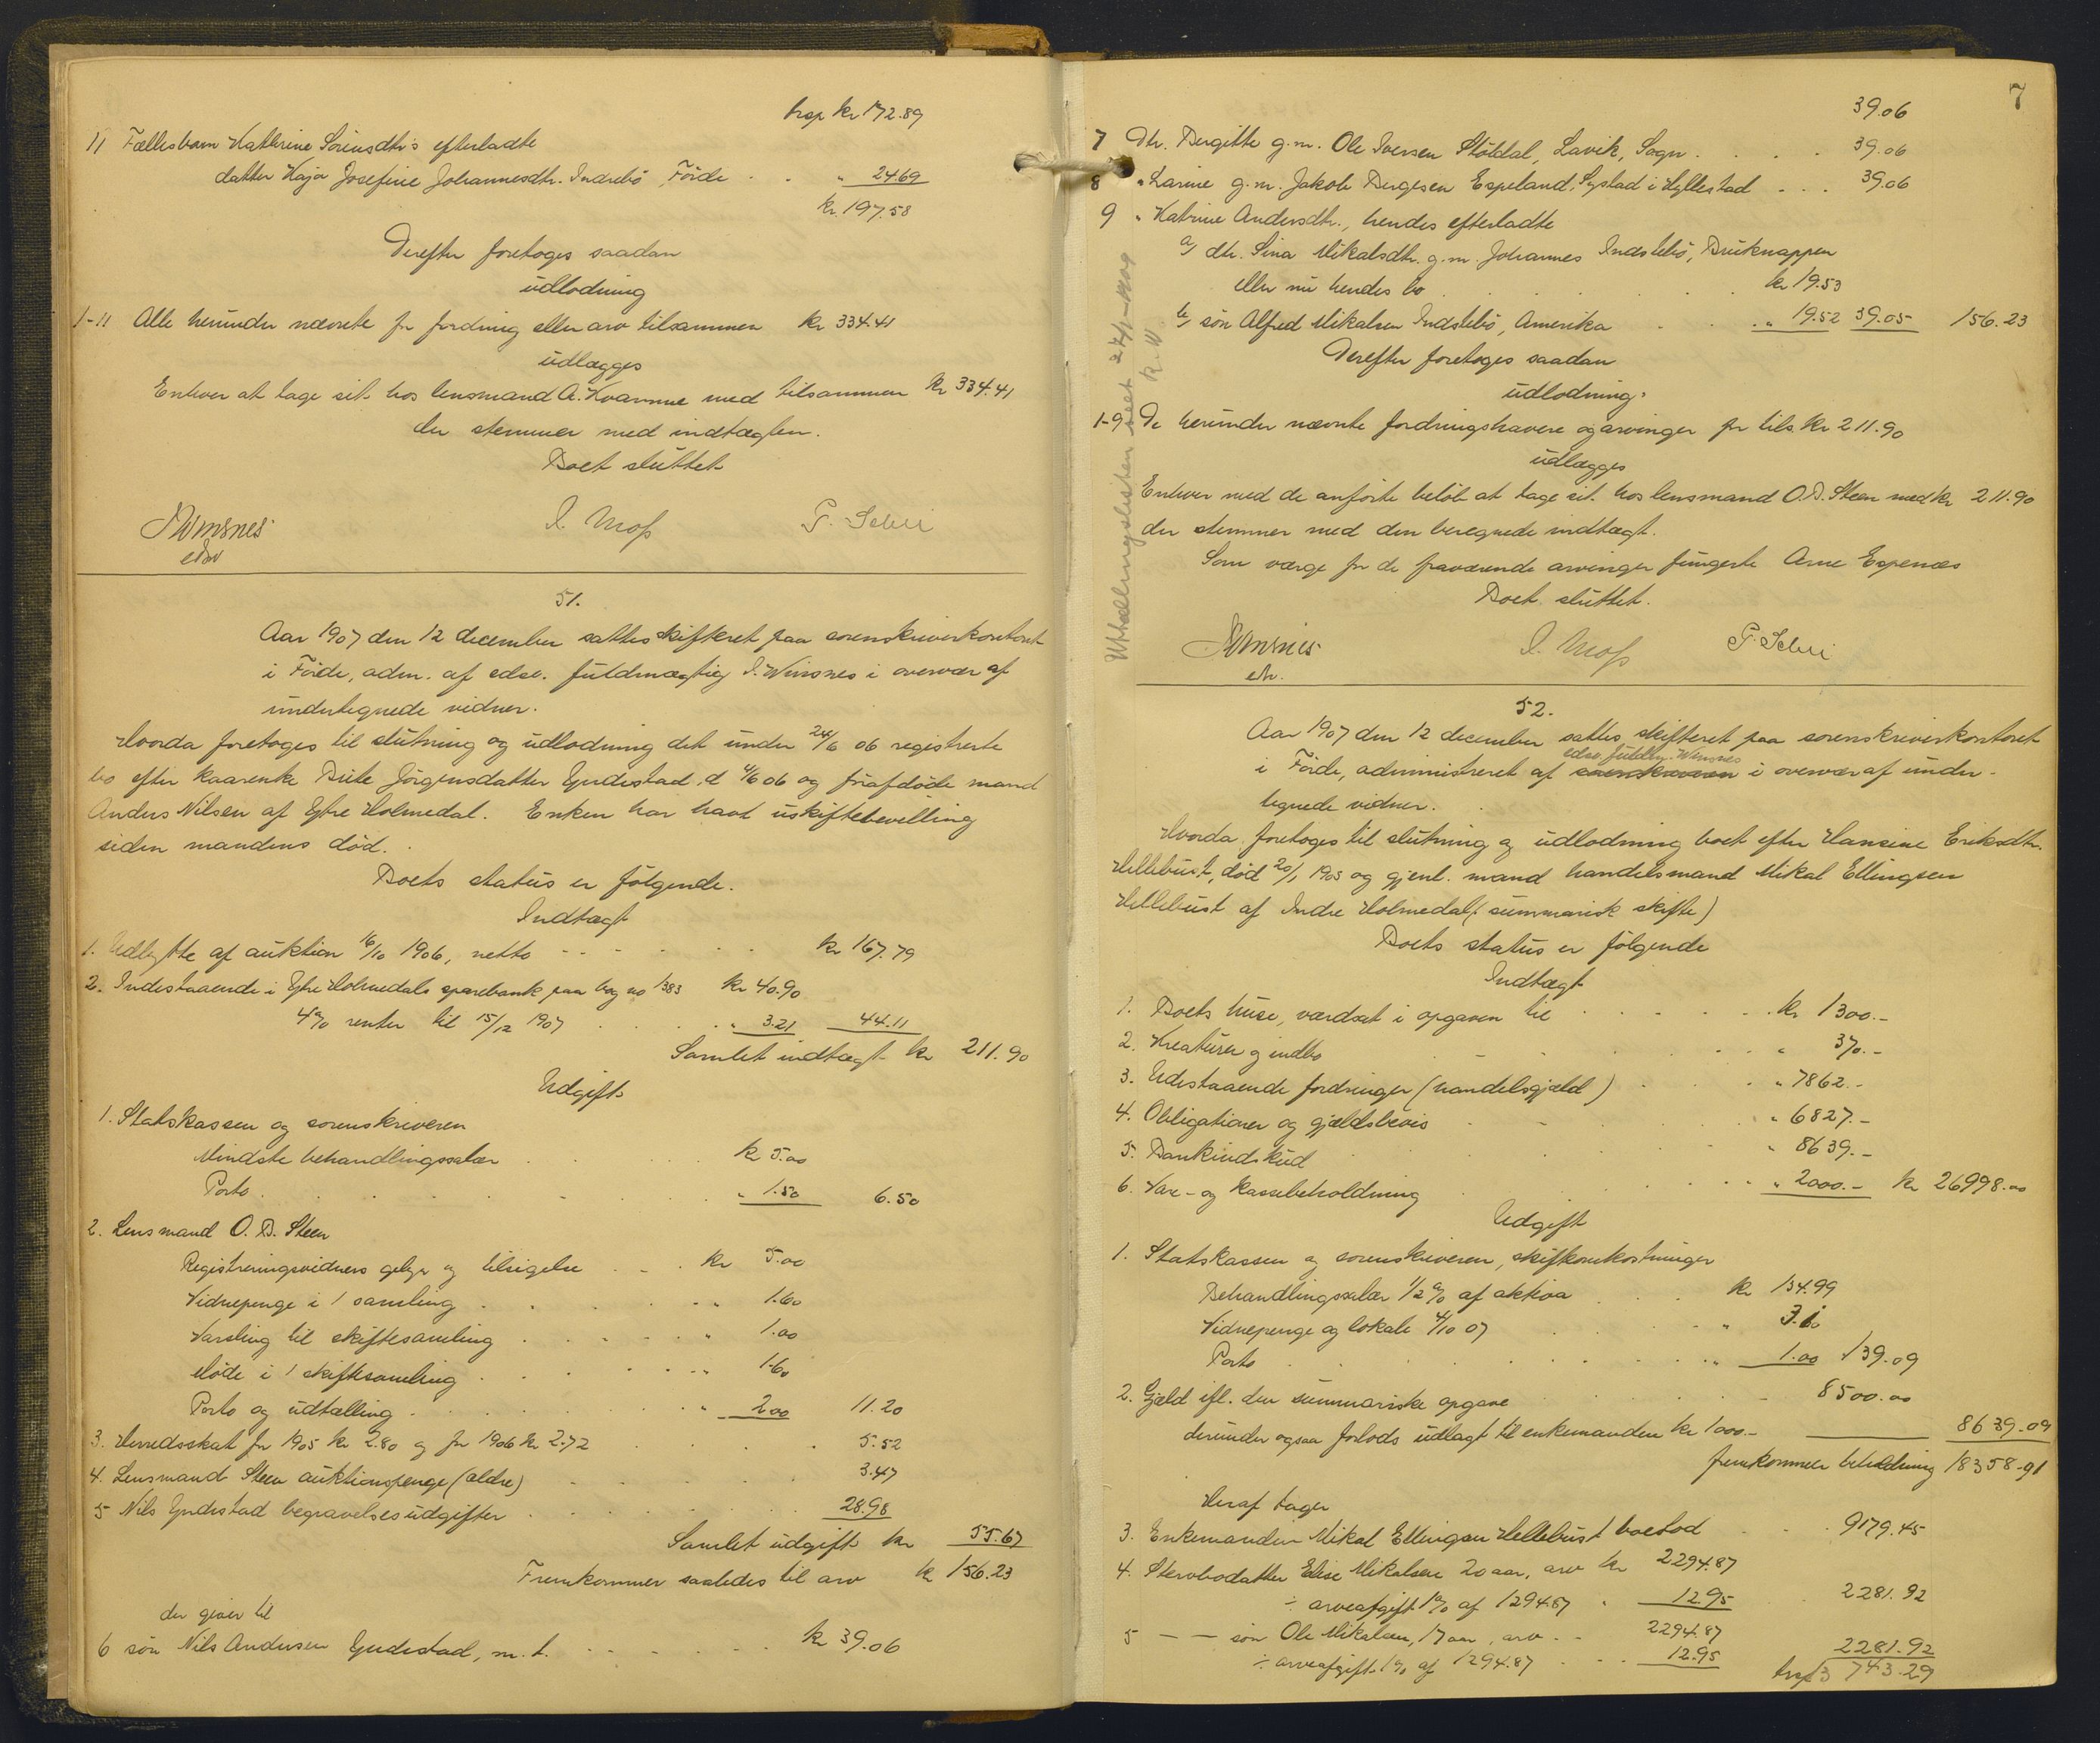 trsp kr 172.89
11 Fællesbarn Kathrine Sörensdtr's efterladte
datter Kaja Josefine Johannesdtr. Indrebö Förde . . „ 24.69
kr. 197.58
Derefter foretoges saadan
udlodning
1-11 Alle herunder nævnte for fordring eller arv tilsammen kr 334.41
udlægges
Enhver at tage sit hos lensmand A. Kvamme med tilsammen kr 334.41
der stemmer med indtægten.
Boet sluttet
Winsnes I. Moss P. Schei
edsv
51.
Aar 1907 den 12 december sattes skifteret paa sorenskriverkontoret
i Förde, adm. af edsv. fuldmægtig I. Winsnes i overvær af
undertegnede vidner.
Hvorda foretoges til slutning og udlodning det under 24/6 06 registrerte
bo efter kaarenke Brite Jörgensdatter Yndestad, d 4/6 06 og forafdöde mand
Anders Nilsen af Ytre Holmedal. Enken har havt uskiftebevilling
siden mandens död.
Boets status er fölgende.
Indtægt
1. Udbytte af auktion 16/10 1906, netto - - - . . kr 167.79
2. Indestaaende i Ytre Holmedals sparebank paa bog no 1383 kr 40.90
4% renter til 15/12 1907 . . . „ 3.21 44.11
Samlet indtægt kr 211.90
Udgift
1. Statskassen og sorenskriveren
Mindste behandlingssalær . . . kr 5.00
Porto . . . . „ 1.50 6.50
2. Lensmand O. B. Steen
Registreringsvidners gebyr og tilsigelse . . . kr 5.00
Vidnepenge i 1 samling . . . „ 1.60
Varsling til skiftesamling . . . „ 1.00
Möde i 1 skiftesamling . . . „ 1.60
Porto og udtælling . . . „ 2.00 11.20
3. Herredsskat for 1905 kr 2.80 og for 1906 kr 2.72 . . . 5.52
4. Lensmand Steen auktionspenge (ældre) . . . 3.47
5 Nils Yndestad begravelsesudgifter . . . 28.98
Samlet udgift kr 55.67
Fremkommer saaledes til arv kr 156.23
der giver til
6 sön Nils Andersen Yndestad, m. t. . . . kr 39.06
7
39.06
7 Dtr. Bergitte g.m. Ole Iversen Stöldal, Lavik, Sogn . . . . 39.06
8 „ Larine g.m. Jakob Bergesen Espeland, Systad i Hyllestad . . . 39.06
9 „ Katrine Andersdtr., hendes efterladte
a) dtr. Sina Mikalsdtr. g.m. Johannes Indrebö, Bruknappen
eller nu hendes bo . . . kr 19.53
b) sön Alfred Mikalsen Indrebö, Amerika . . . „ 19.52 39.05 156.23
Derefter foretoges saadan
udlodning:
1-9 De herunder nævnte fordringshavere og arvinger for tils. kr 211.90
udlægges
Enhver med de anförte belöb at tage sit hos lensmand O. B. Steen med kr 211.90
der stemmer med den beregnede indtægt.
Som værge for de fraværende arvinger fungerte Arne Espenæs
Boet sluttet.
Winsnes I. Moss P. Schei
edsv.
52.
Aar 1907 den 12 december sattes skifteret paa sorenskriverkontoret
edsv fuldm. Winsnes
i Förde, administreret af sorenskriveren i overvær af under-
tegnede vidner.
Hvorda foretoges til slutning og udlodning boet efter Hansine Eriksdtr.
Hellebust, död 20/1 1905 og gjenl. mand handelsmand Mikal Ellingsen
Hellebust af Indre Holmedal (summarisk skifte)
Boets status er fölgende
Indtægt
1. Boets huse, værdsat i opgaven til . . . kr 1300.-
2. Kreaturer og indbo . . . „ 370.-
3. Udestaaende fordringer (handelsgjæld) . . . „ 7862.-
4. Obligationer og gjældsbevis . . . „ 6827.-
5. Bankindskud . . . „ 8639.-
6. Vare- og kassebeholdning . . . „ 2000.- kr 26998.00
Udgift
1. Statskassen og sorenskriveren, skifteomkostninger
Behandlingssalær 1/2 % af aktiva . . . kr 134.99
Vidnepenge og lokale 4/10 07 . . . „ 3.10
Porto . . . „ 1.00 139.09
2. Gjæld ifl. den summariske opgave . . . 8500.00
derunder ogsaa forlods udlagt til enkemanden kr 1000.- 8639.09
fremkommer beholdning 18358.91
Heraf tager
3. Enkemanden Mikal Ellingsen Hellebust boeslod . . . 9179.45
4. Stervbodatter Elise Mikalsen 20 aar, arv kr 2294.87
÷ arveafgift 1% af 1294.87 „ 12.95 2281.92
5 — — sön Ole Mikalsen, 17 aar, arv . . 2294.87
÷ arveafgift 1% af 1294.87 . . . 12.95 2281.92
trsp 13 743.29